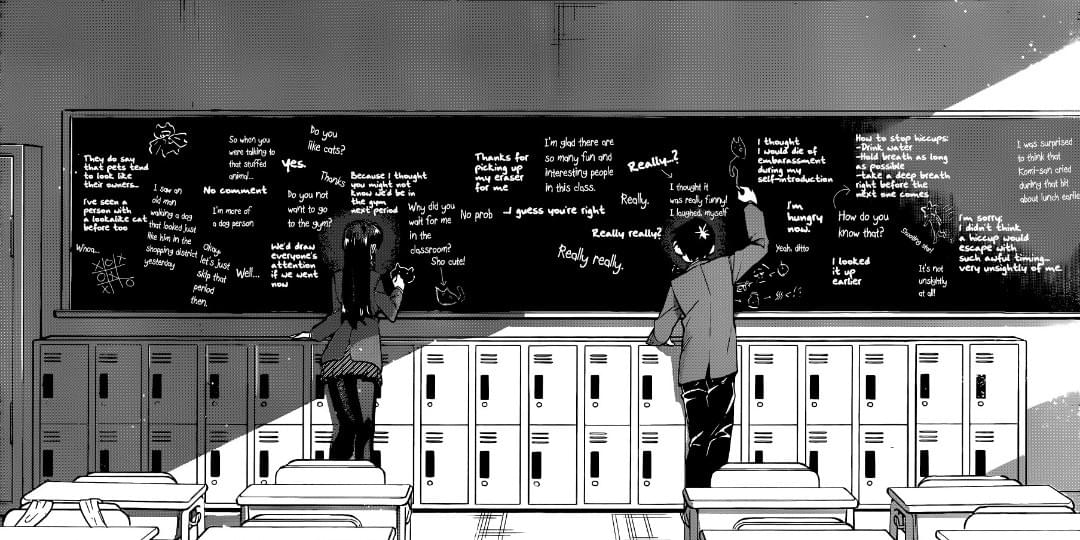 They do say
that pets tend
to look like
their owners...
I've seen a
person with
a lookalike cat
before too
Whoa...
X
O
X
O
X
I saw an
old man
walking a dog
that looked just
like him in the
shopping district
yesterday
So when you
were talking to
that stuffed
animal...
No comment
I'm more of
a dog person
Okay,
let's just
skip that
period
then.
Well...
Do you
like cats?
Yes.
Thanks
Do you not
want to go
to the gym?
We'd draw
everyone's
attention
if we went
now
Because I thought
you might not
know we'd be in
the gym
next period
Why did you
wait for me
in the
classroom?
Sho cute!
No prob
Thanks for
picking up
my eraser
for me
I'm glad there are
so many fun and
interesting people
in this class.
...I guess you're right
Really...?
Really.
Really really?
Really really.
I thought it
was really funny!
I laughed, myself
I thought
I would die of
embarassment
during my
self-introduction
I'm
hungry
now.
Yeah, ditto
How to stop hiccups:
-Drink water
-Hold breath as long
as possible
-take a deep breath
right before the
next one comes
How do you
know that?
I looked
it up
earlier
Shooting star!
It's not
unsightly
at all!
I'm sorry;
I didn't think
a hiccup would
escape with
such awful timing...
very unsightly of me
I was surprised
to think that
Komi-san cried
during that bit
about lunch earlier